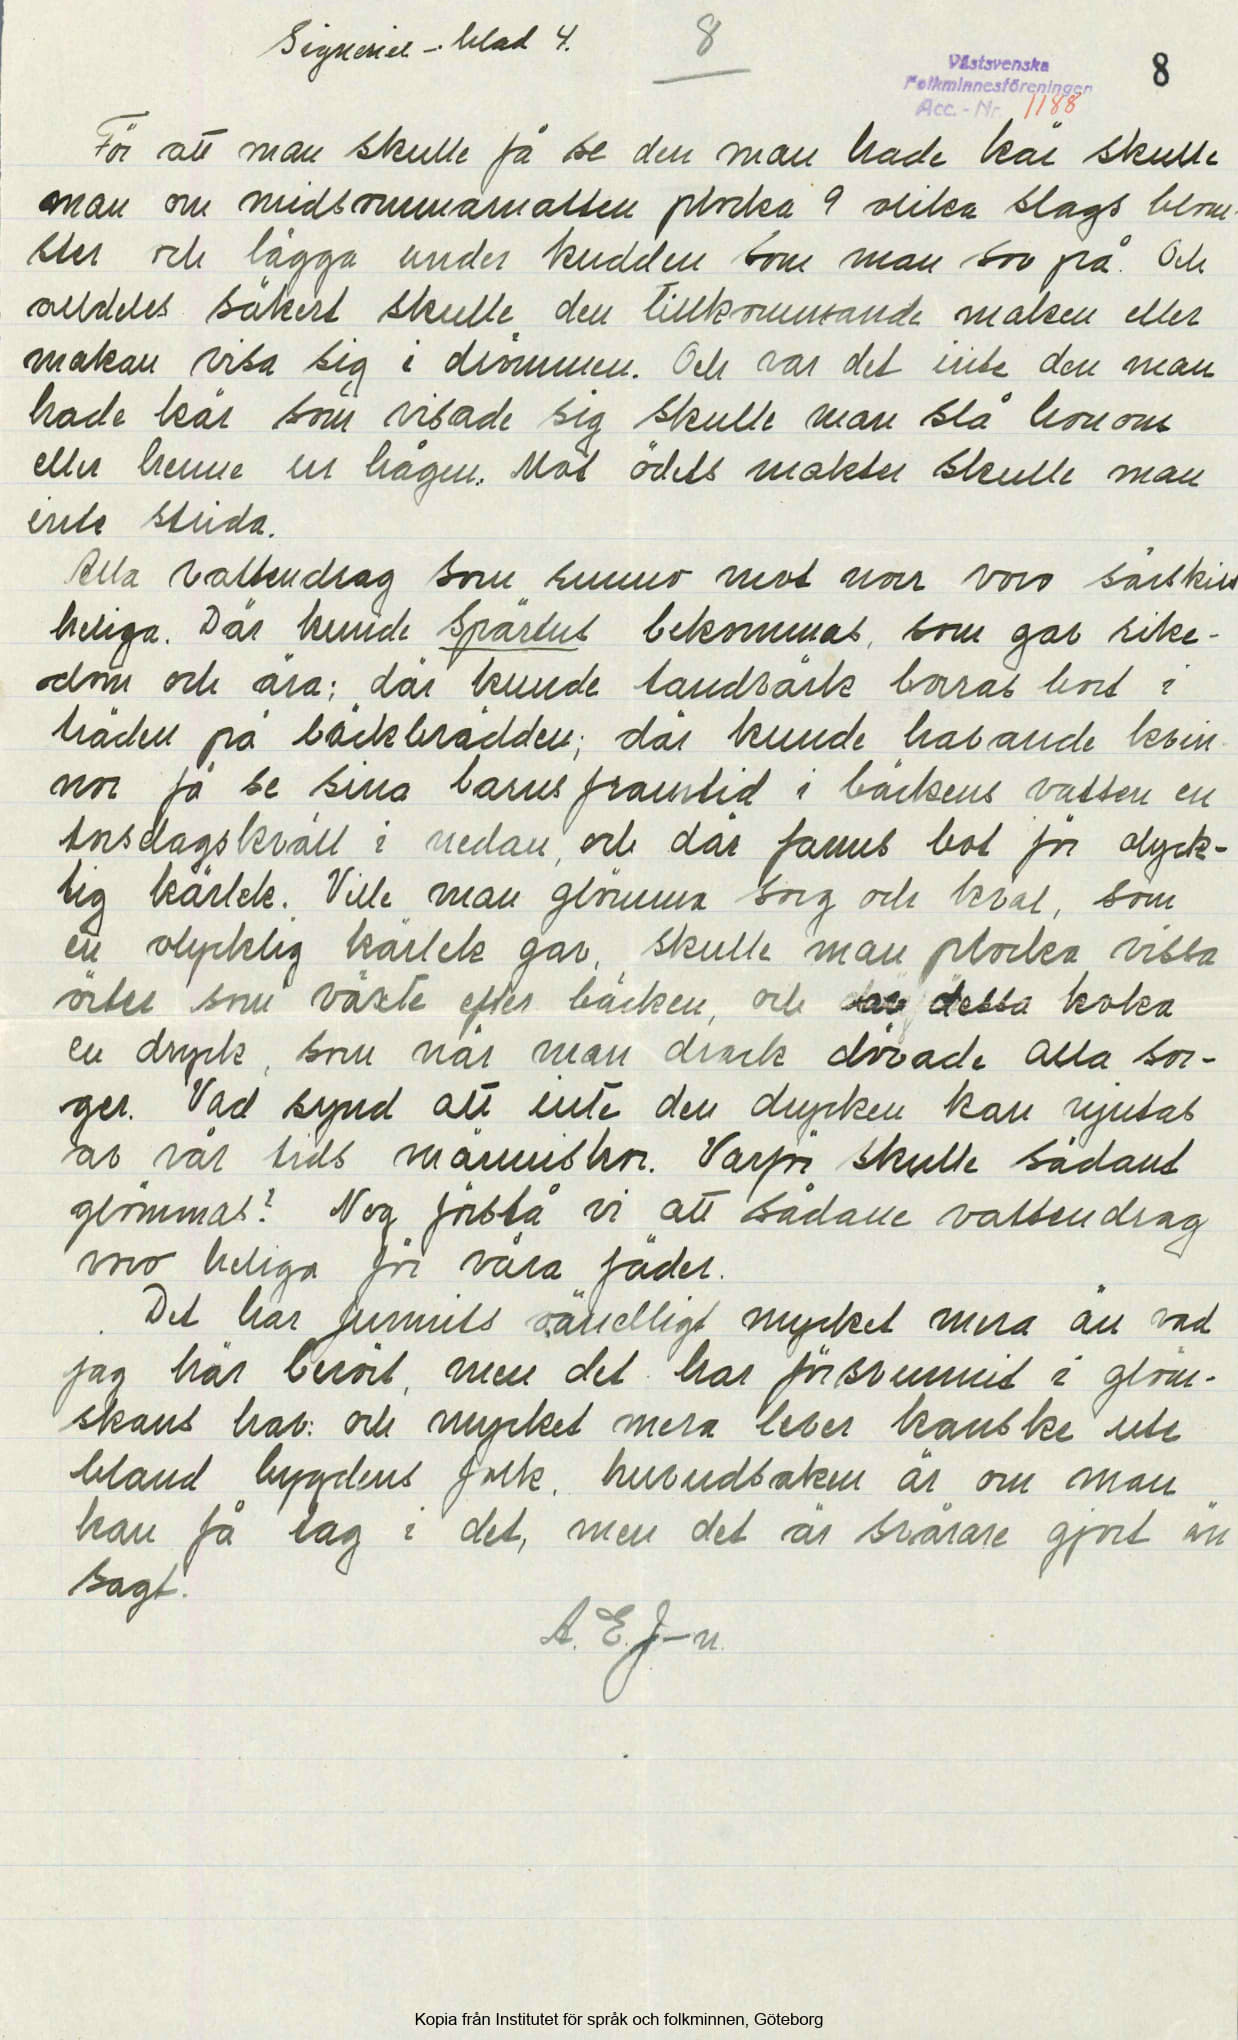 Signerier – blad 4.
8
Västsvenska
Folkminnesföreningen
Acc.-Nr. 1188
8
För att man skulle få se den man hade kär skulle
man om midsommarnatten plocka 9 olika slags blom-
ster och lägga under kudden som man sov på. Och
alldeles säkert skulle den tillkommande maken eller
makan visa sig i drömmen. Och var det inte den man
hade kär som visade sig skulle man slå honom
eller henne ur hågen. Mot ödets makter skulle man
inte strida.
Alla vattendrag som runno mot norr voro särskilt
heliga. Där kunde Spärtus bekommas, som gav rike-
dom och ära; där kunde tandvärk borras bort i
träden på bäckbrädden; där kunde havande kvin-
nor få se sina barns framtid i bäckens vatten en
torsdagskväll i nedan, och där fanns bot för olyck-
lig kärlek. Ville man glömma sorg och kval, som
en olycklig kärlek gav, skulle man plocka vissa
örter som växte efter bäcken, och av dessa koka
en dryck, som när man drack dövade alla sor-
ger. Vad synd att inte den drycken kan njutas
av vår tids människor. Varför skulle sådant
glömmas? Nog förstå vi att sådane vattendrag
voro heliga för våra fäder.
Det har funnits oändligt mycket mera än vad
jag här berört, men det har försvunnit i glöm-
skans hav: och mycket mera lever kanske ute
bland bygdens folk, huvudsaken är om man
kan få tag i det, men det är svårare gjort än
sagt.
A. E. J–n.
Kopia från Institutet för språk och folkminnen, Göteborg